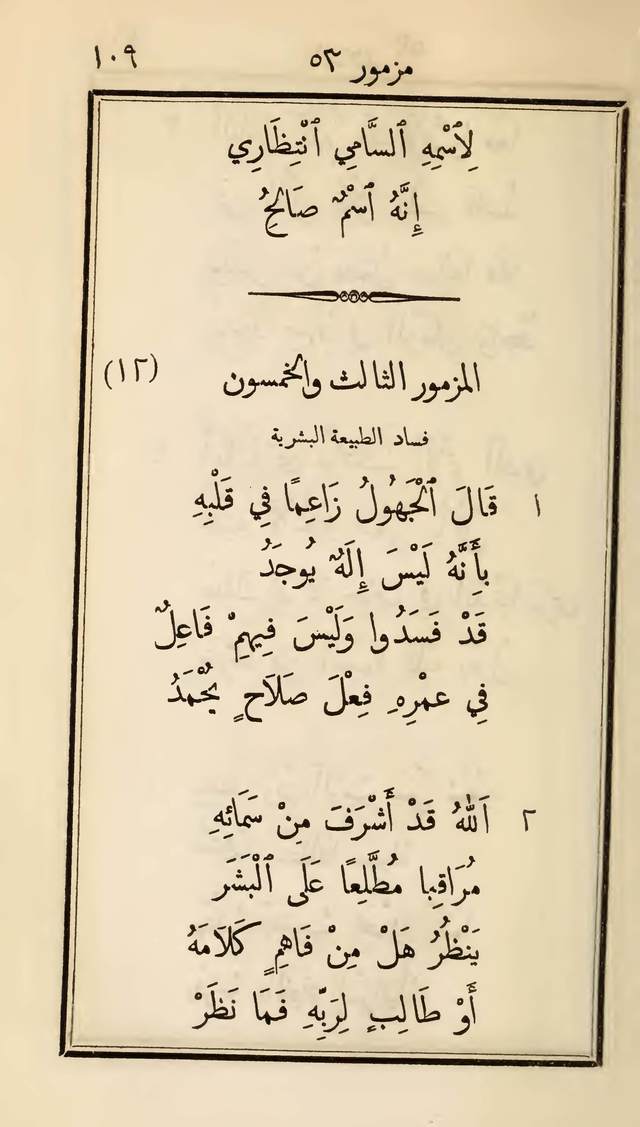 مزمور ٥٣ ١٠٩
لِٱسْمِهِ ٱلسَّامِي ٱنْتِظَارِي
إِنَّهُ ٱسْمٌ صَالِحُ
المزمور الثالث والخمسون (١٢)
فساد الطبيعة البشرية
١ قَالَ ٱلْجَهُولُ زَاعِمًا فِي قَلْبِهِ
بِأَنَّهُ لَيْسَ إِلَهٌ يُوجَدُ
قَدْ فَسَدُوا وَلَيْسَ فِيهِمْ فَاعِلٌ
فِي عمْرِهِ فِعْلَ صَلَاحٍ يُحْمَدُ
٢ اَللهُ قَدْ أَشْرَفَ مِنْ سَمَائِهِ
مُرَاقِبا مُطَّلِعًا عَلَى ٱلْبَشَرَ
يَنْظُرُ هَلْ مِنْ فَاهِمٍ كَلَامَهُ
أَوْ طَالِبٍ لِرَبِّهِ فَمَا نَظَرْ